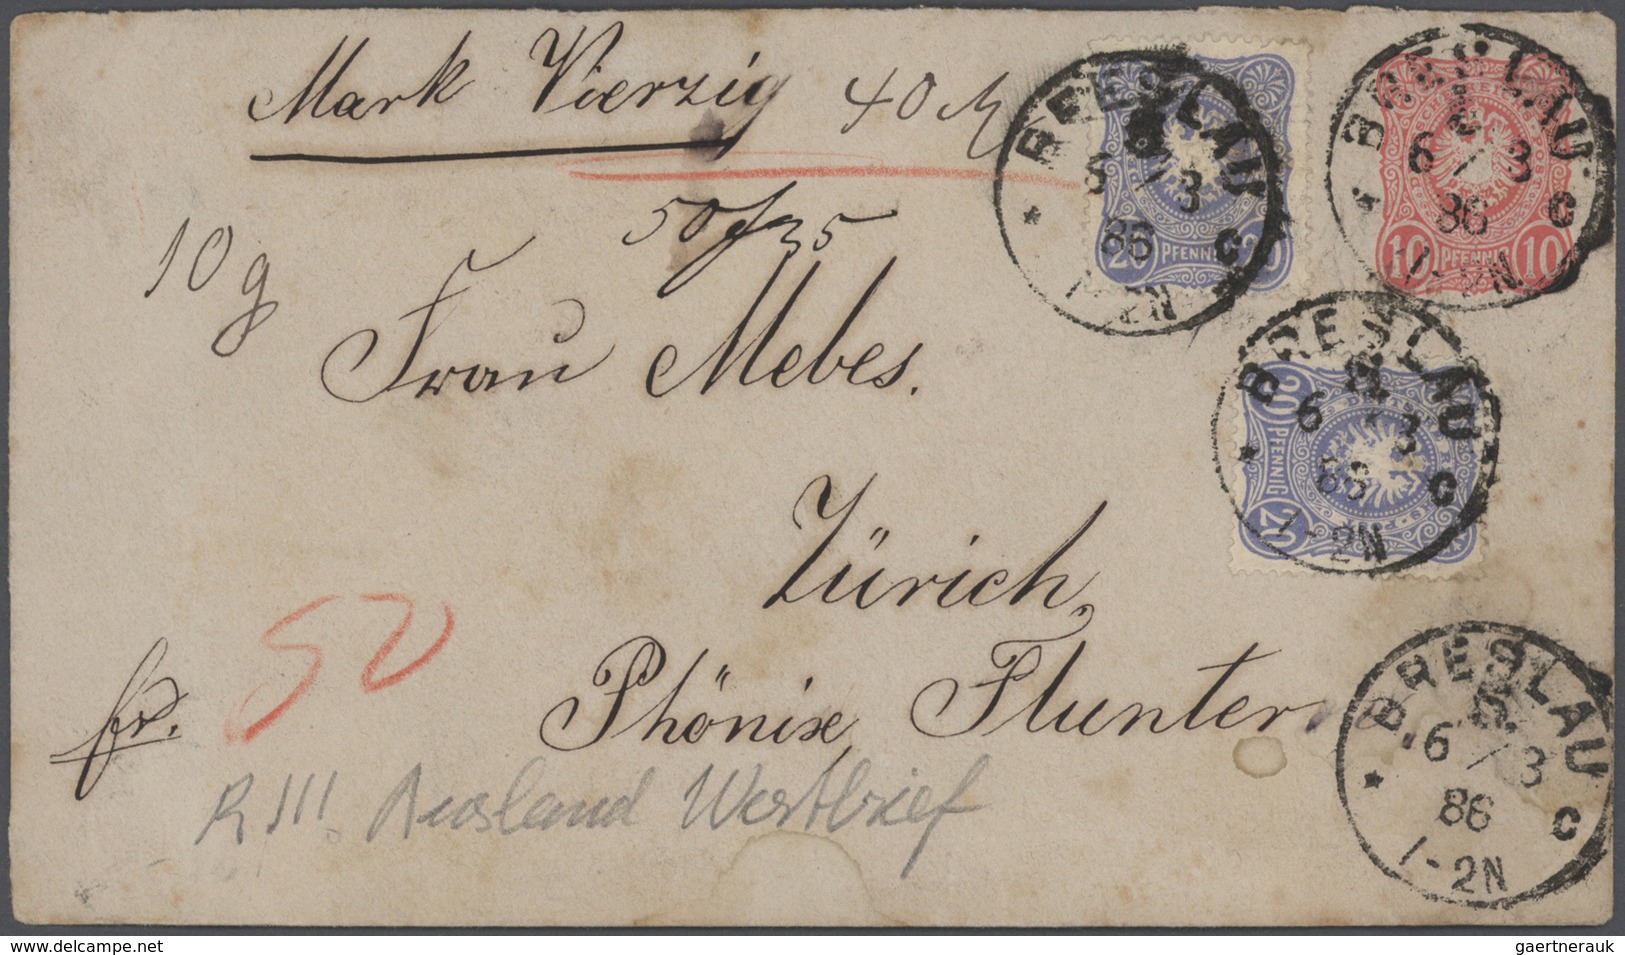 Mark Vierzig 40 M
50 f 35
10 g
Frau Mebes.
Zürich,
Phönix Flunter.
fr.
50
R III. Ausland Wertbrief
BRESLAU
6/3
86
* C
1-2N
20 PFENNIG 20
BRESLAU
6/3
86
* C
1-2N
10 PFENNIG 10
BRESLAU
6/3
86
* C
1-2N
20 PFENNIG 20
BRESLAU
5.
6/3
86
* C
1-2N
www.delcampe.net
gaertnerauk